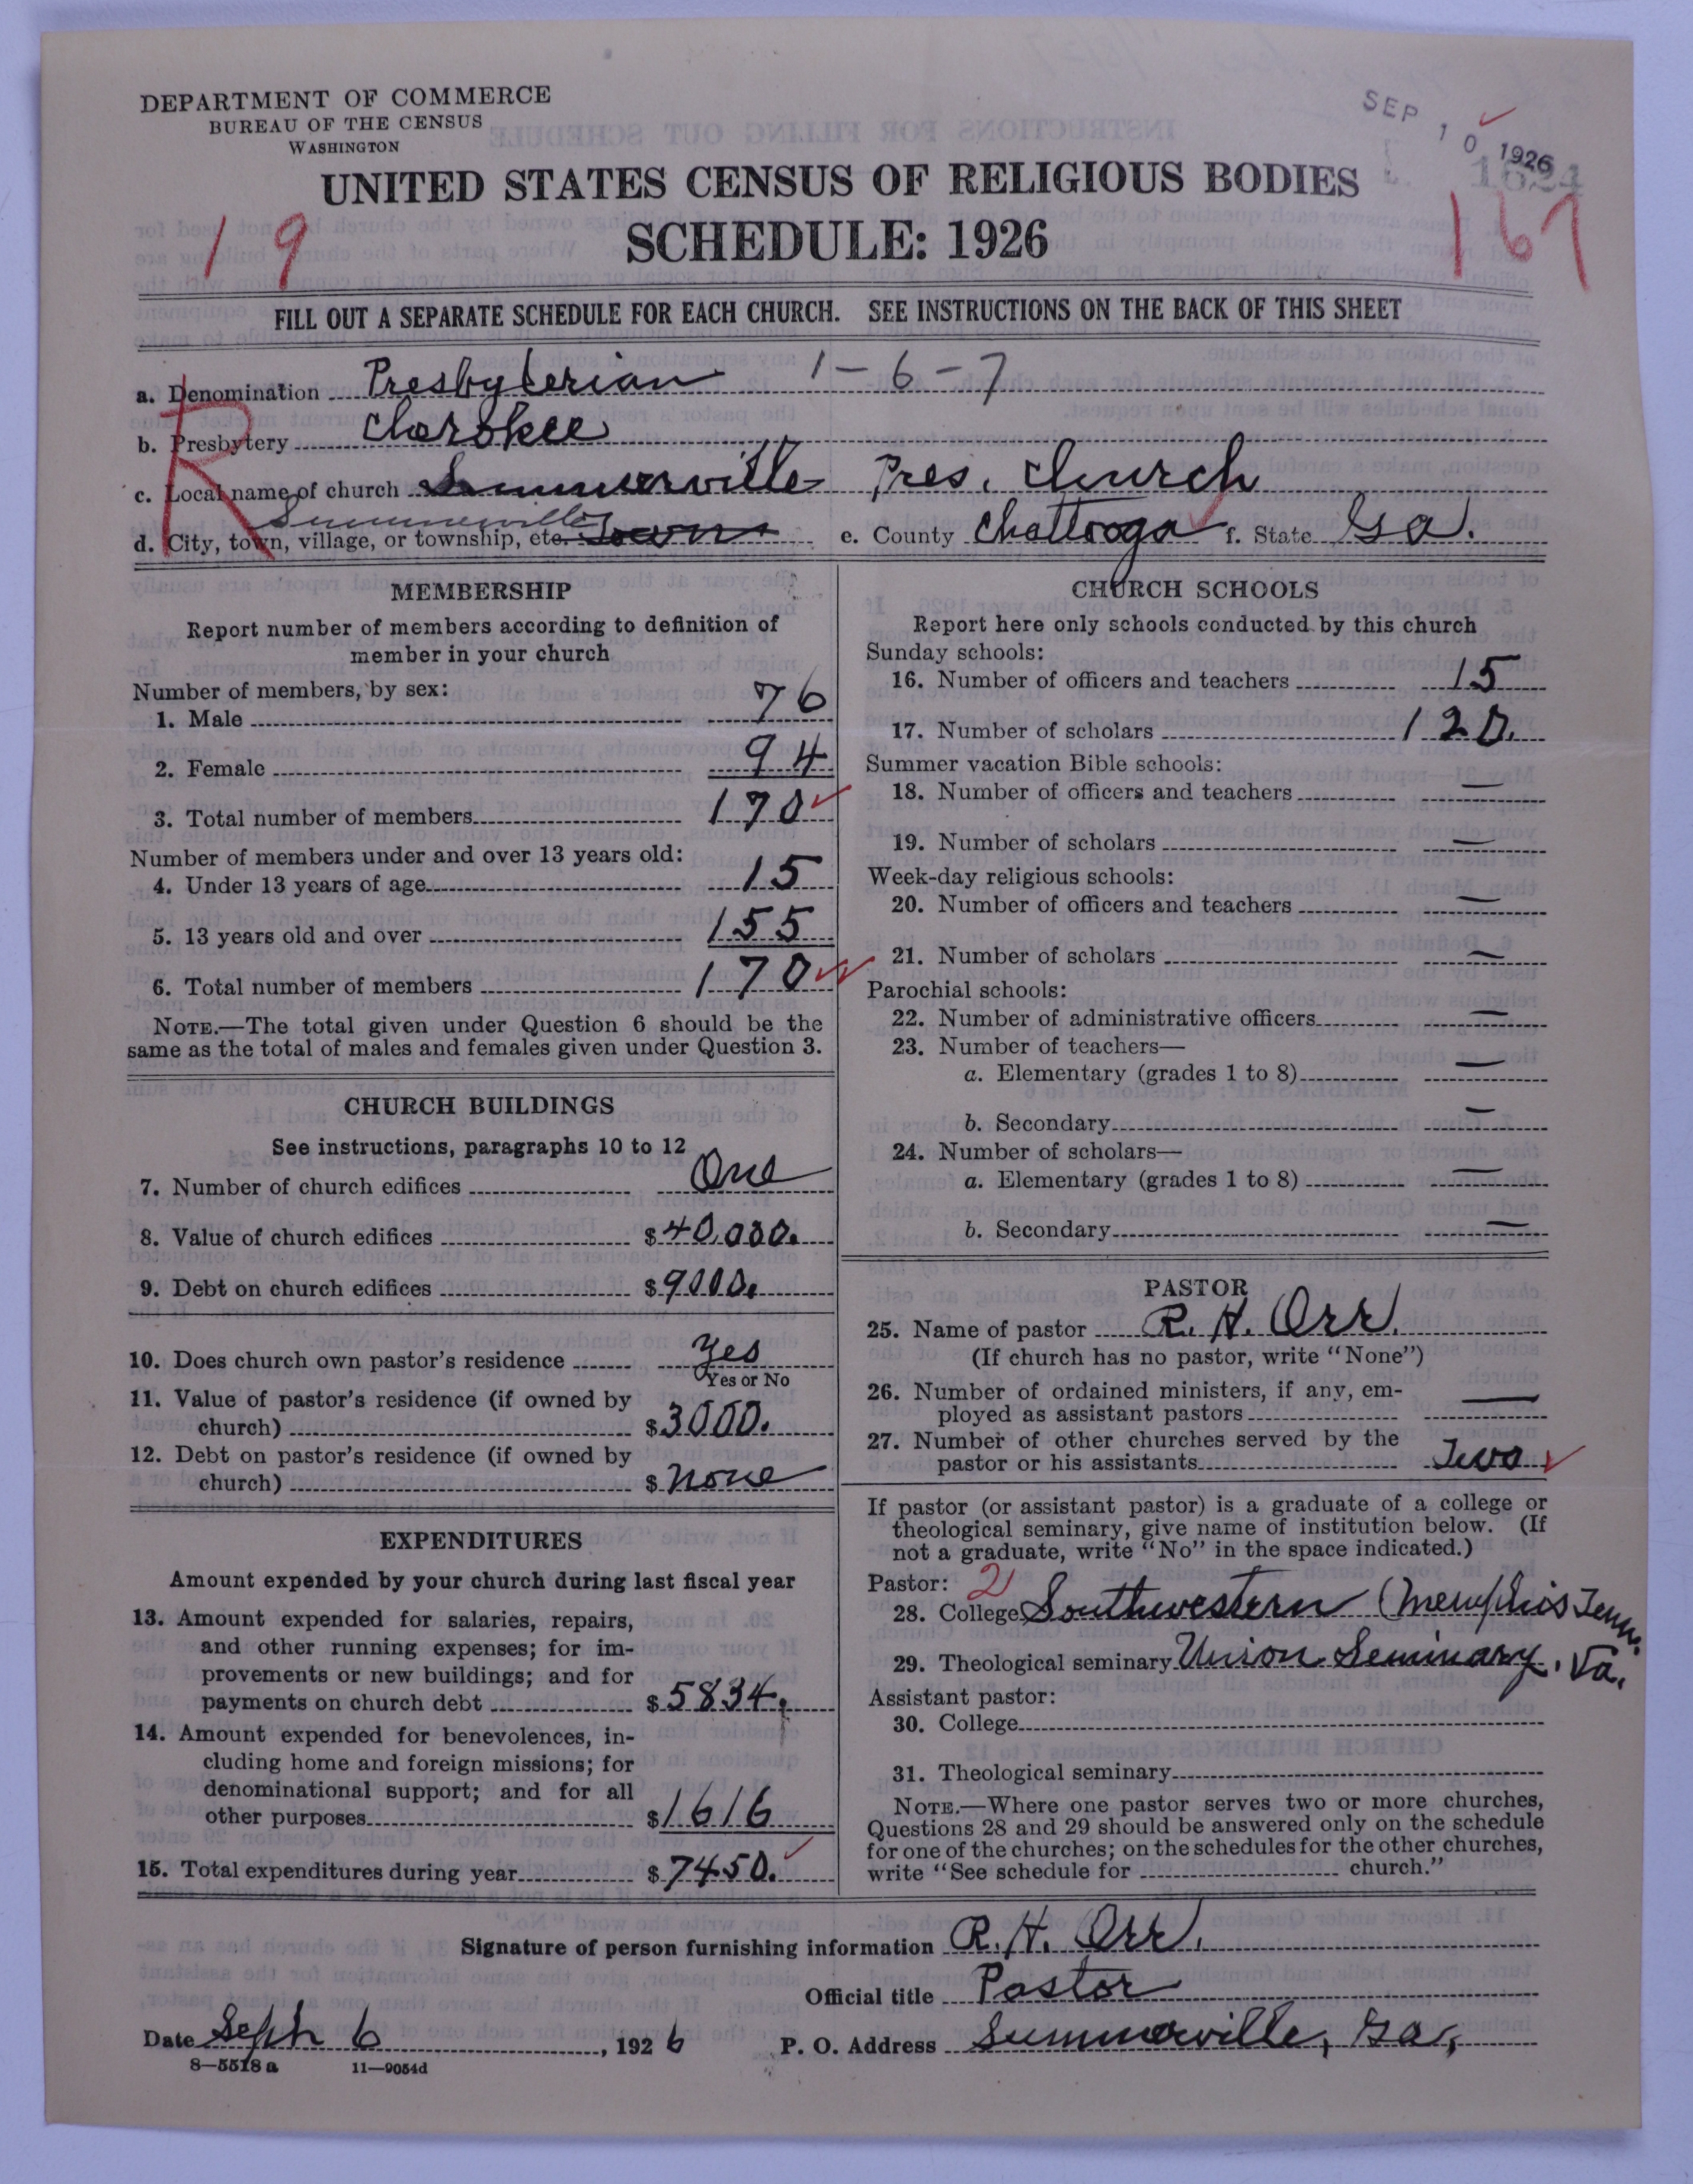 DEPARTMENT OF COMMERCE
BUREAU OF THE CENSUS
WASHINGTON
SEP 10 1926
1624
UNITED STATES CENSUS OF RELIGIOUS BODIES
SCHEDULE: 1926
19
167
FILL OUT A SEPARATE SCHEDULE FOR EACH CHURCH. SEE INSTRUCTIONS ON THE BACK OF THIS SHEET
R
a. Denomination Presbyterian 1-6-7
b. Presbytery Cherokee
c. Local name of church Summerville Pres. Church
Summerville
d. City, town, village, or township, etc. Town e. County Chattooga f. State Ga.
MEMBERSHIP
Report number of members according to definition of
member in your church
Number of members, by sex:
1. Male 76
2. Female 94
3. Total number of members 170
Number of members under and over 13 years old:
4. Under 13 years of age 15
5. 13 years old and over 155
6. Total number of members 170
NOTE.—The total given under Question 6 should be the
same as the total of males and females given under Question 3.
CHURCH BUILDINGS
See instructions, paragraphs 10 to 12
7. Number of church edifices One
8. Value of church edifices $40,000.
9. Debt on church edifices $9000.
10. Does church own pastor's residence Yes
Yes or No
11. Value of pastor's residence (if owned by
church) $3000.
12. Debt on pastor's residence (if owned by
church) $ none
EXPENDITURES
Amount expended by your church during last fiscal year
13. Amount expended for salaries, repairs,
and other running expenses; for im-
provements or new buildings; and for
payments on church debt $5834.
14. Amount expended for benevolences, in-
cluding home and foreign missions; for
denominational support; and for all
other purposes $1616
15. Total expenditures during year $7450.
CHURCH SCHOOLS
Report here only schools conducted by this church
Sunday schools:
16. Number of officers and teachers 15
17. Number of scholars 120.
Summer vacation Bible schools:
18. Number of officers and teachers —
19. Number of scholars —
Week-day religious schools:
20. Number of officers and teachers —
21. Number of scholars —
Parochial schools:
22. Number of administrative officers —
23. Number of teachers—
a. Elementary (grades 1 to 8) —
b. Secondary —
24. Number of scholars—
a. Elementary (grades 1 to 8) —
b. Secondary —
PASTOR
25. Name of pastor R. H. Orr.
(If church has no pastor, write "None")
26. Number of ordained ministers, if any, em-
ployed as assistant pastors —
27. Number of other churches served by the
pastor or his assistants Two
If pastor (or assistant pastor) is a graduate of a college or
theological seminary, give name of institution below. (If
not a graduate, write "No" in the space indicated.)
Pastor: 2
28. College Southwestern (Memphis Tenn.
29. Theological seminary Union Seminary. Va.
Assistant pastor:
30. College
31. Theological seminary
NOTE.—Where one pastor serves two or more churches,
Questions 28 and 29 should be answered only on the schedule
for one of the churches; on the schedules for the other churches,
write "See schedule for church."
Signature of person furnishing information R. H. Orr.
Official title Pastor
Date Sept 6, 1926 P. O. Address Summerville, Ga.,
8—5518 a 11—9054d